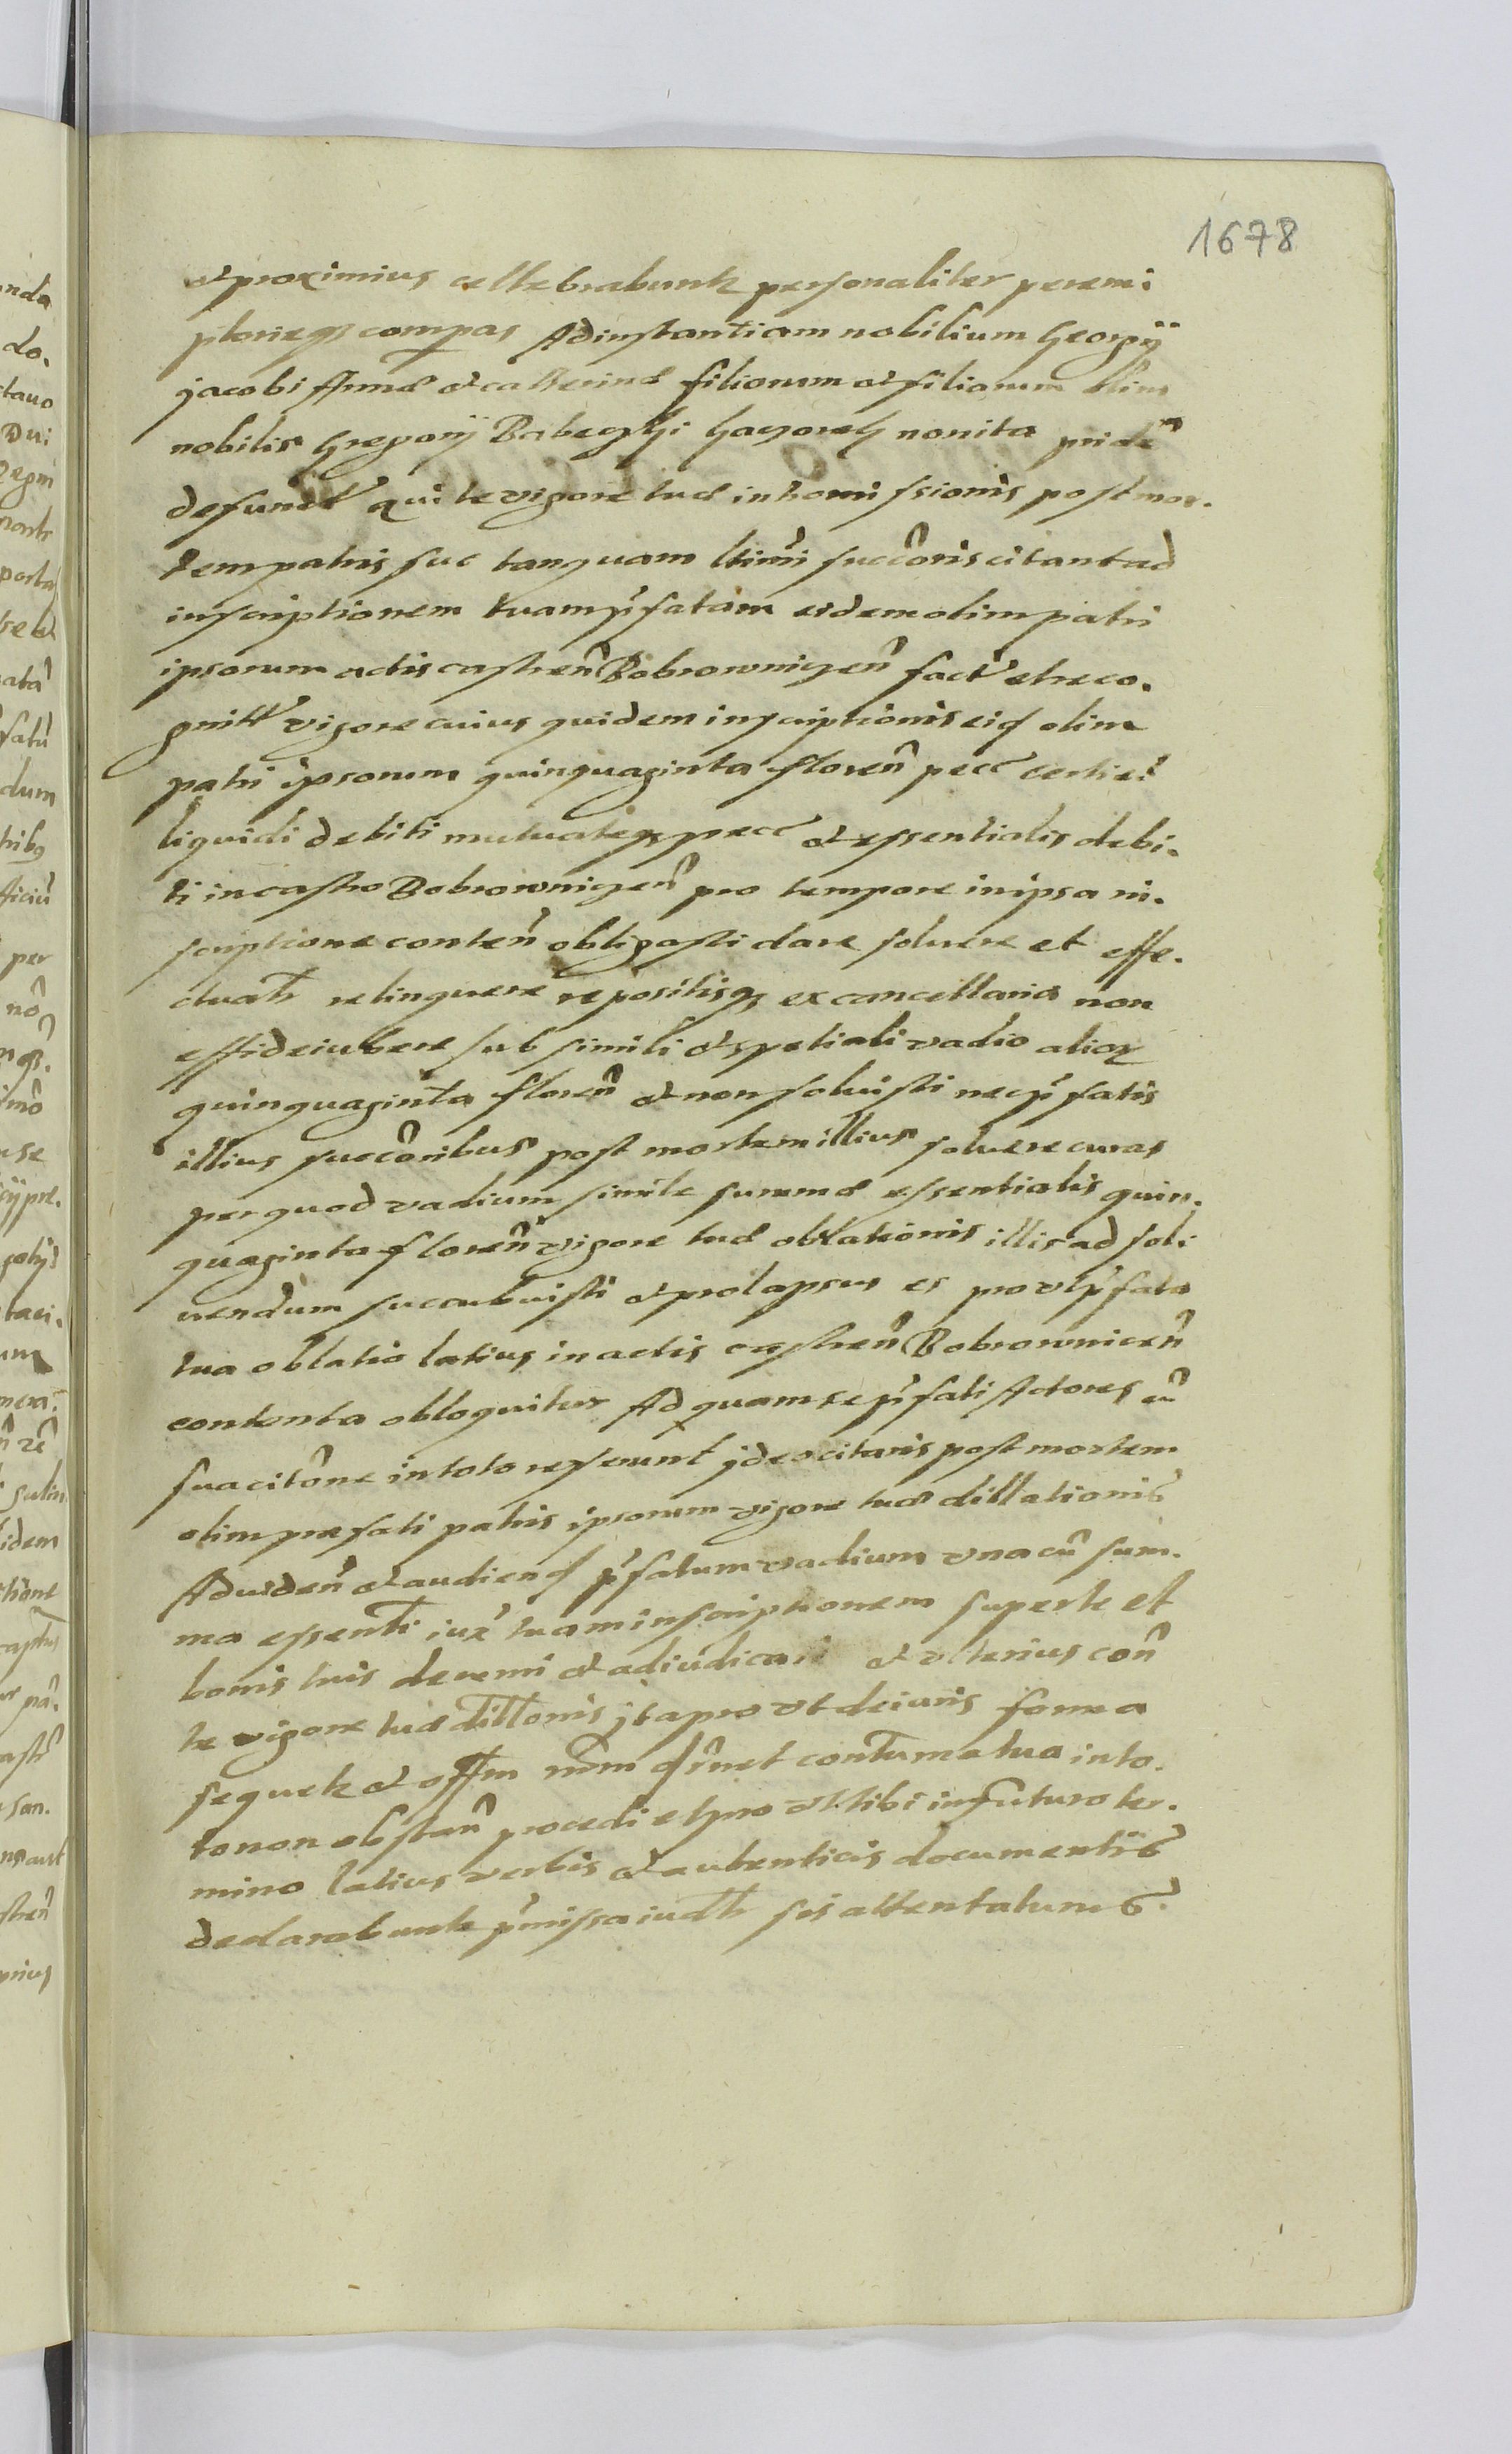 1678
et proximius cellebrabunt personaliter peremi
ptorieqȝ compas Ad instantiam nobilium Georgÿ
jacobi Annæ et catherinæ filiorum et filiarum olim
nobilis Gregorÿ nonita pridē
defunctˀ qui te vigore tuæ inhomissionis post mor.
tem patris sue tanquam ltimi succoris citant ad
inscriptionem tuam pˀfatam eidem olim patri
ipsorum actis castren̑ Bobrownicen̑ factˀ et reco.
gnitˀ vigore cuius quidem inscriptionis eid olim
patri ipsorum quinquaginta floren̑ pecc certi et
liquidi debiti mutuateqȝ pecc et essentialis debi.
ti in castro Bobrownicen̑ pro tempore in ipsa in.
scriptione conten̑ obligasti dare soluere et effe.
ctuatr relinquere repositisqȝ ex cancellaria non
effideiubere sub simili et spetiali vadio alior
quinquaginta floren̑ et non soluisti nec pˀfatis
illius succoribus post mortem illius soluere curas
per quod vadium simile summæ essentialis quin.
quaginta floren̑ vigore tuæ oblationis illis ad sol.
uendum succubuisti et prolapsus es pro vt pˀfata
tua oblatio latius in actis castren̑ Bobrownicen̑
contenta obloquitur Ad quam se pˀfati Actores cū
sua citōne in toto referunt jdeo citaris post mortem
olim præfati patris ipsorum vigore tuæ dillationis
Ad viden̑ et audiend pˀfatum vadium vna cū sum.
ma essenti iuxˀ tuam inscriptionem super te et
bonis tuis decerni et adiudicari et vlterius con̑
te vigore tuæ dillonis jta pro vt de iuris forma
sequetr et offm contuma tua in to.
to non obstan̑ procedi et pro vt tibi in futuro ter.
mino latius verbis et autenticis documentis
declarabunt pˀmissa iudtr sis attentaturus.